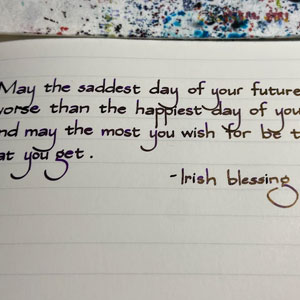 May the saddest day of your future
worse than the happiest day of you
nd may the most you wish for be t
at you get.
-Irish blessing